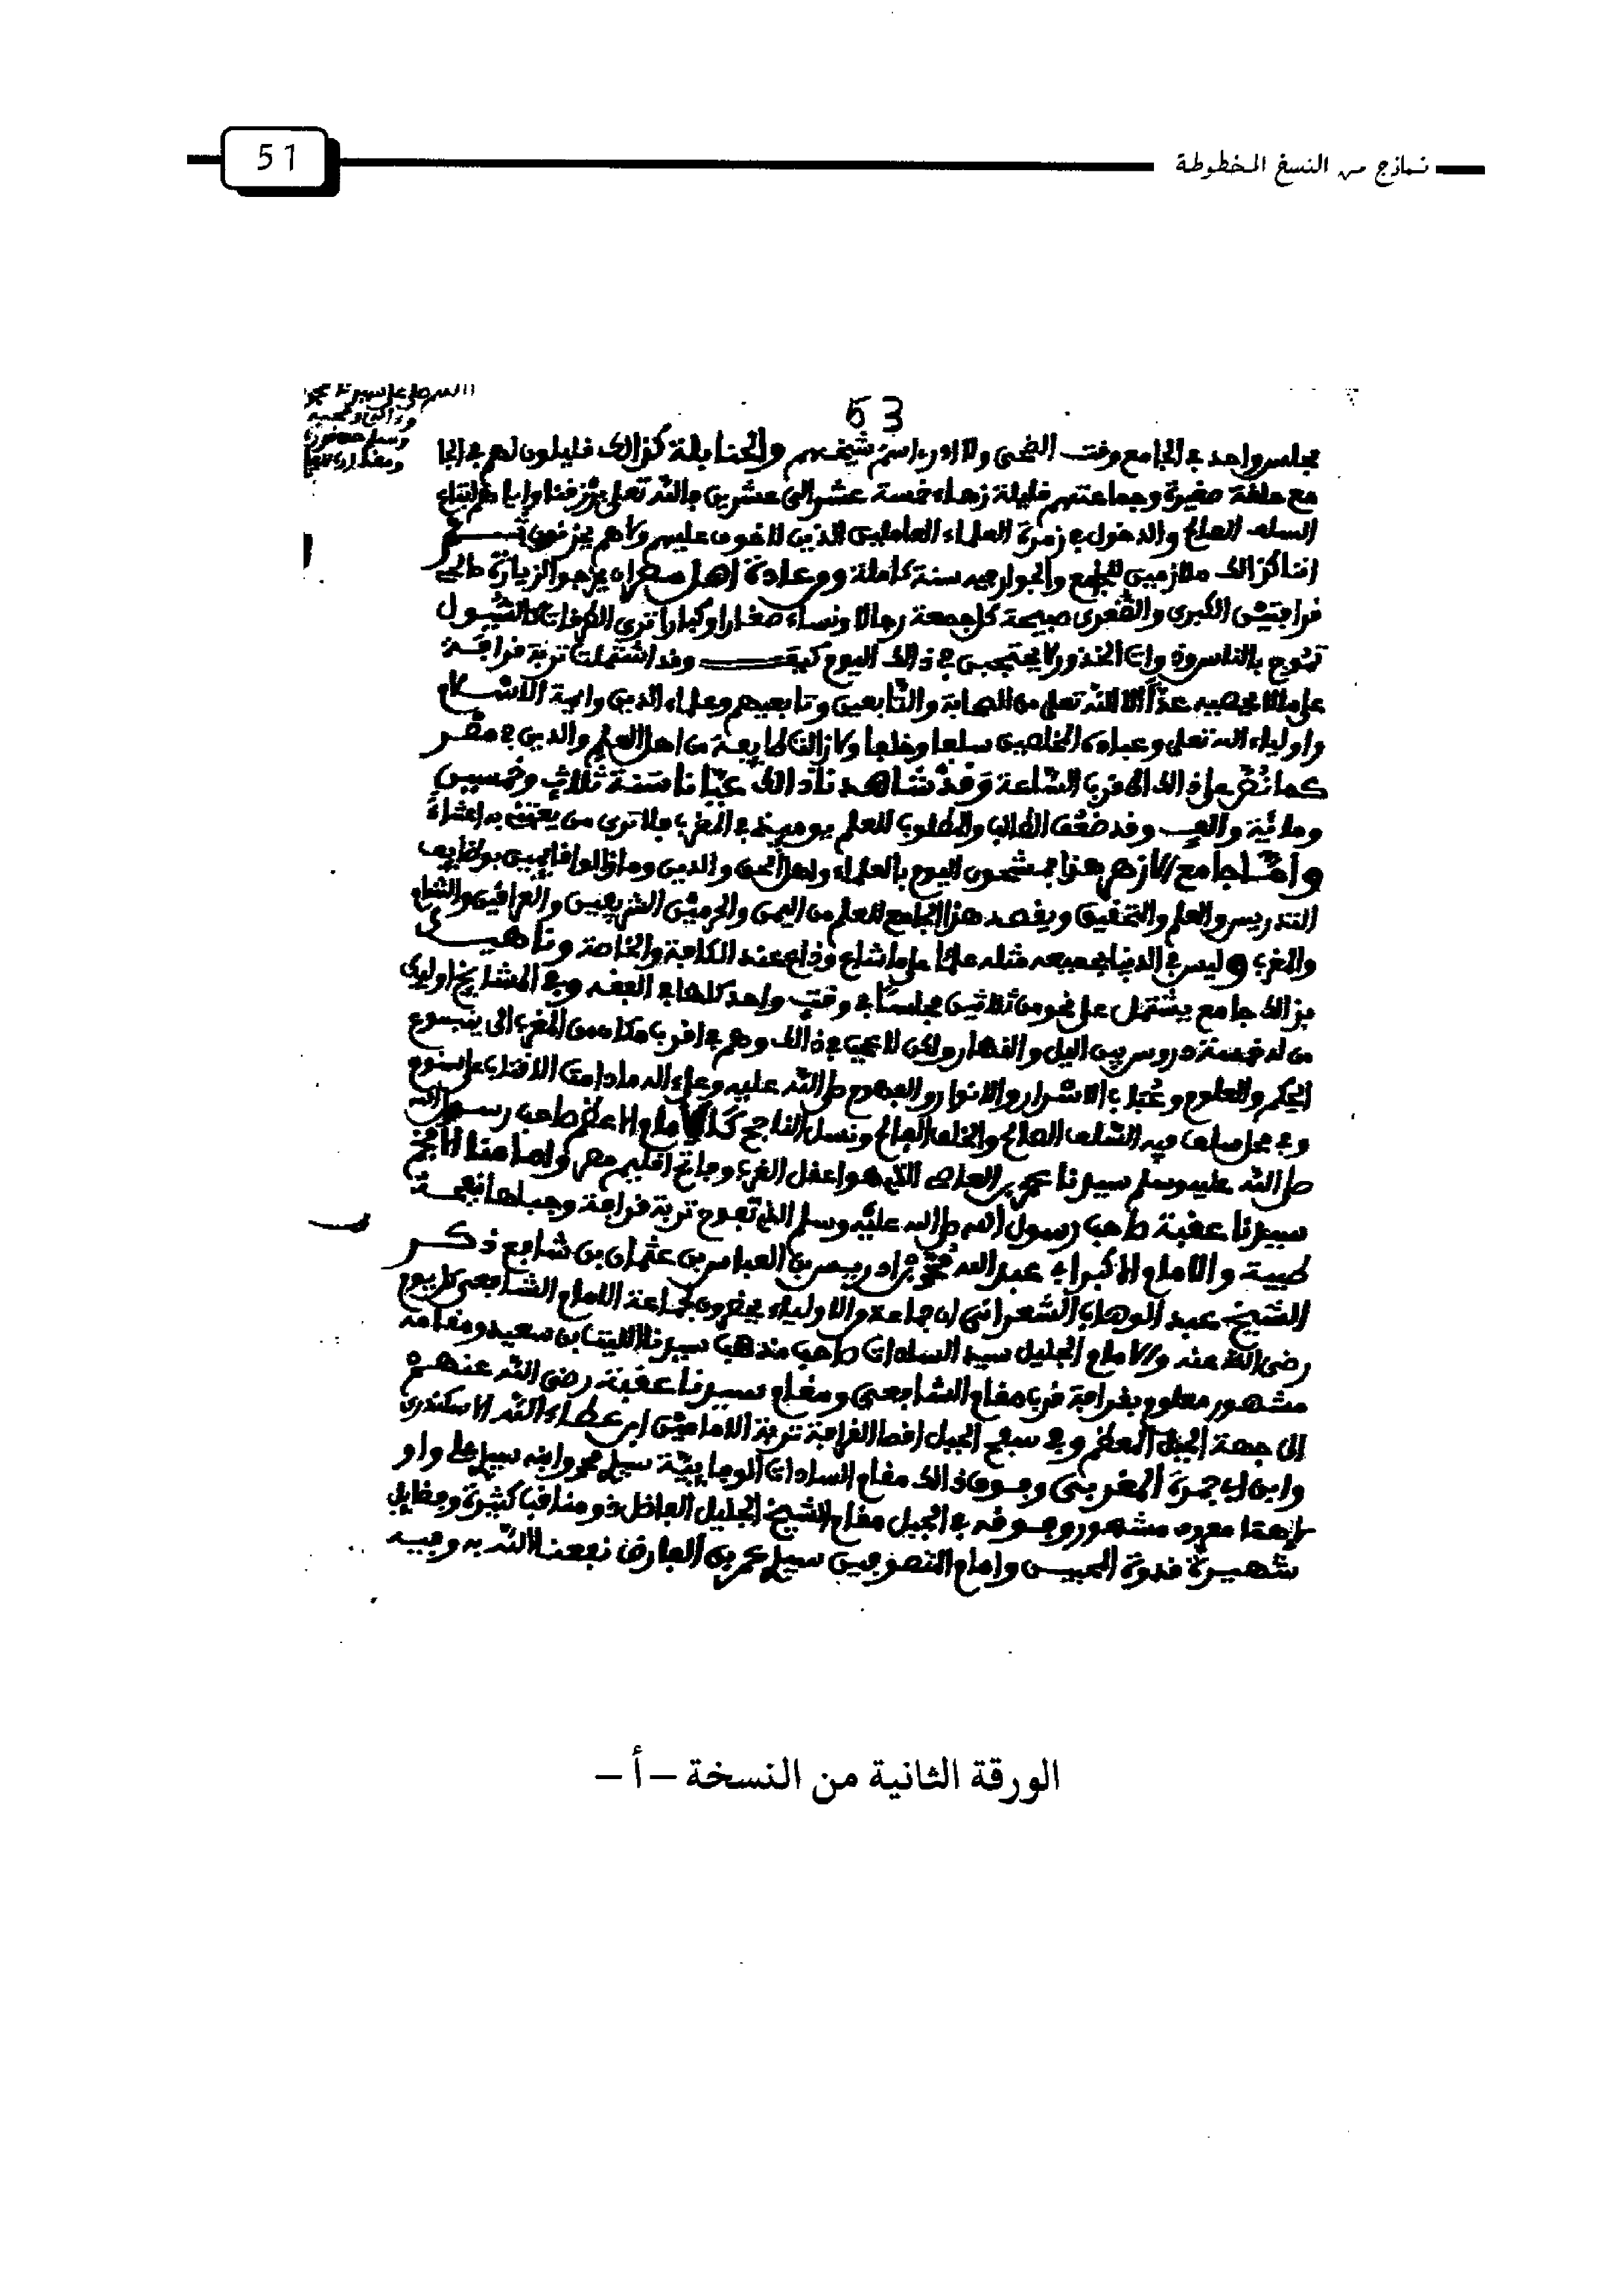 نماذج من النسخ المخطوطة
51
63
مجلس واحد في الجامع وقت الضحى ولا ادر ما اسم شيخهم والحنابلة كذالك قليلون لهم في الجا
مع حلقة صغيرة وجماعتهم قليلة زهاء خمسة عشر الى عشرين والله تعلى يرزقنا واياهم اتباع
السلف الصالح والدخول في زمرة العلماء العاملين الذين لا خوف عليهم ولا هم يحزنون
اننا كذالك ملازمين للجامع والجوار فيه سنة كاملة ومن عادة اهل مصر ان يخرجوا لزيارة
قرافتين الكبرى والصغرى صبيحة كل جمعة رجالا ونساء صغارا وكبارا ترى الطرقات كالسيول
تموج بالناس وذوات الخدور لا يحتجبن في ذالك اليوم وقد اشتملت تربة قرافة
على ما لا يحصيه عدًّا الا الله تعلى من الصحابة والتابعين وتابعيهم وعلماء الدين وايمة الاسلام
واولياء الله تعلى وعباده المخلصين سلفا وخلفا ولا زالت طايفة من اهل العلم والدين في مصر
كما نص على ذالك الى قرب الساعة وقد شاهدنا ذالك عيانا سنة ثلاث وخمسين
ومائية والف وقد ضعف الطالب والمطلوب للعلم يوميذ في المغرب فلا ترى من يعتني به
وامّا جامع الازهر هذا فمشحون اليوم بالعلماء واهل الحق والدين وما زالوا قايمين بوظايف
التدريس والعلم والتحقيق ويقصد هذا الجامع للعلم من اليمن والحرمين الشريفين والعراقين والشام
والمغرب وليس في الدنيا جميعه مثله علمًا على ما شاع وذاع عند الكافة والخاصة وناهيك
بذالك جامع يشتمل على نحو من ثلاثين مجلسًا في وقت واحد كلها في الفقه وفي المشايخ اوليك
من له خمسة دروس بين اليل والنهار ولكن لا عجب في ذالك وهم في اقرب مكان من المغرب الى ينبوع
الحكم والعلوم الاسرار والانوار صلى الله عليه وعلى اله ما دامت
وفي محل صلف فيه السلف الصالح والخلف الصالح ونسل الناجح كالامام الاعظم صاحب رسول الله
صلى الله عليه وسلم سيدنا عمر بن العاص الذي هو وفاتح اقليم مصر وامامنا الافخم
سيدنا عقبة صاحب رسول الله صلى الله عليه وسلم الذي تفوح تربة قرافة وجبلها نفحة
طيبة والامام الاكبر ابي عبد الله محمد بن ادريس بن العباس بن عثمان بن شافع ذكر
الشيخ عبد الوهاب الشعراني ان جماعة والاولياء يحضرون لجماعة الامام الشافعي كل يوم
رضي الله عنه والامام الجليل سيد السادات صاحب مذهب سيدنا الليث بن سعيد ومقامه
مشهور معلوم بقرافة قرب مقام الشافعي ومقام سيدنا عقبة رضي الله عنهم
الى جهة الجبل المعظم وفي سفح الجبل اقصا القرافة تربة الامامين ابن عطاء الله الاسكندري
وابن ابي جمرة المغربي وفوق ذالك مقام السادات الوفايية سيدي محمد وابنه سيدي علي
معروف مشهور وفوقه في الجبل مقام الشيخ الجليل الفاضل ذو مناقب كثيرة وفضايل
شهيرة قدوة المحبين وامام سيدي عمر بن الفارض نفعنا الله به وفيه
الورقة الثانية من النسخة –أ–